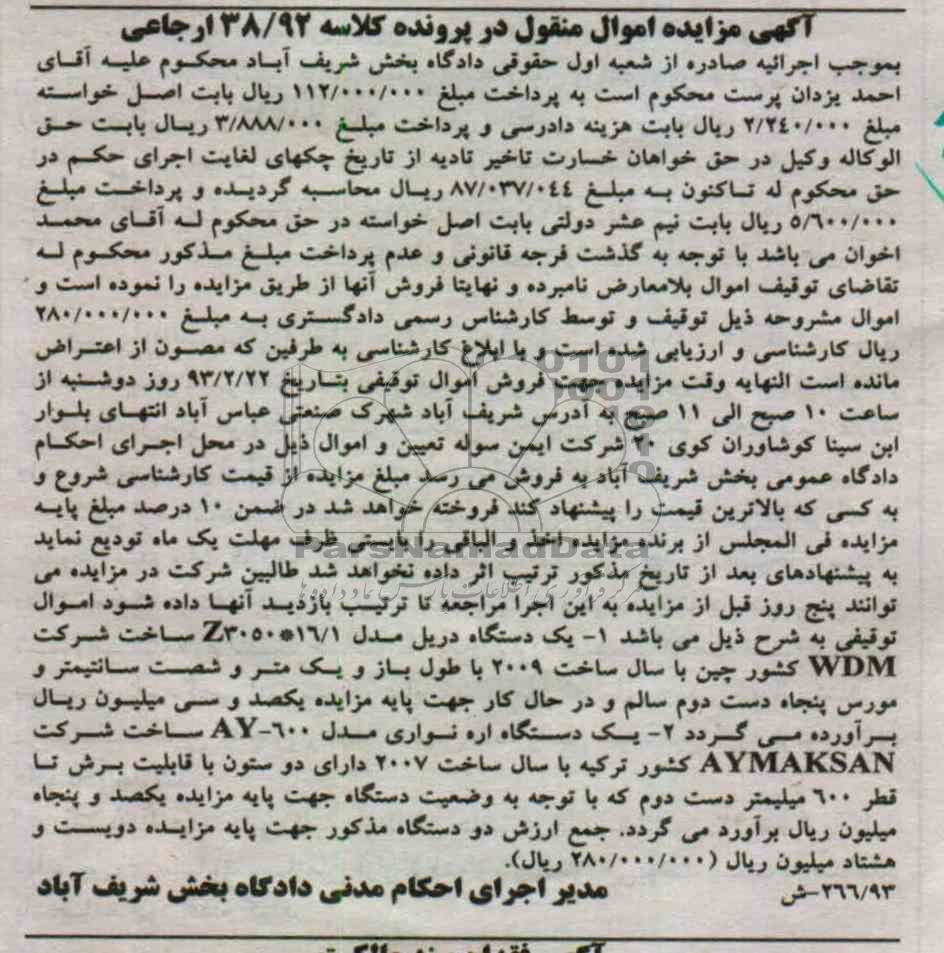 آگهی مزایده اموال منقول در پرونده کلاسه ۳۸/۹۲ ارجاعی
بموجب اجرائیه صادره از شعبه اول حقوقی دادگاه بخش شریف آباد محکوم علیه آقای
احمد یزدان پرست محکوم است به پرداخت مبلغ ۱۱۲/۰۰۰/۰۰۰ ریال بابت اصل خواسته
مبلغ ۲/۲٤۰/۰۰۰ ریال بابت هزینه دادرسی و پرداخت مبلغ ۳/۸۸۸/۰۰۰ ریال بابت حق
الوکاله وکیل در حق خواهان خسارت تاخیر تادیه از تاریخ چکهای لغایت اجرای حکم در
حق محکوم له تاکنون به مبلغ ۸۷/۰۳۷/۰٤٤ ریال محاسبه گردیده و پرداخت مبلغ
۵/٦۰۰/۰۰۰ ریال بابت نیم عشر دولتی بابت اصل خواسته در حق محکوم له آقای محمد
اخوان می باشد با توجه به گذشت فرجه قانونی و عدم پرداخت مبلغ مذکور محکوم له
تقاضای توقیف اموال بلامعارض نامبرده و نهایتا فروش آنها از طریق مزایده را نموده است و
اموال مشروحه ذیل توقیف و توسط کارشناس رسمی دادگستری به مبلغ ۲۸۰/۰۰۰/۰۰۰
ریال کارشناسی و ارزیابی شده است و با ابلاغ کارشناسی به طرفین که مصون از اعتراض
مانده است النهایه وقت مزایده جهت فروش اموال توقیفی بتاریخ ۹۳/۲/۲۲ روز دوشنبه از
ساعت ۱۰ صبح الی ۱۱ صبح به آدرس شریف آباد شهرک صنعتی عباس آباد انتهای بلوار
ابن سینا کوشاوران کوی ۲۰ شرکت ایمن سوله تعیین و اموال ذیل در محل اجرای احکام
دادگاه عمومی بخش شریف آباد به فروش می رسد مبلغ مزایده از قیمت کارشناسی شروع و
به کسی که بالاترین قیمت را پیشنهاد کند فروخته خواهد شد در ضمن ۱۰ درصد مبلغ پایه
مزایده فی المجلس از برنده مزایده اخذ و الباقی را بایستی ظرف مهلت یک ماه تودیع نماید
به پیشنهادهای بعد از تاریخ مذکور ترتیب اثر داده نخواهد شد طالبین شرکت در مزایده می
توانند پنج روز قبل از مزایده به این اجرا مراجعه تا ترتیب بازدید آنها داده شود اموال
توقیفی به شرح ذیل می باشد ۱- یک دستگاه دریل مدل Z۳۰۵۰*۱٦/۱ ساخت شرکت
WDM کشور چین با سال ساخت ۲۰۰۹ با طول باز و یک متر و شصت سانتیمتر و
مورس پنجاه دست دوم سالم و در حال کار جهت پایه مزایده یکصد و سی میلیون ریال
برآورده می گردد ۲- یک دستگاه اره نواری مدل AY-٦۰۰ ساخت شرکت
AYMAKSAN کشور ترکیه با سال ساخت ۲۰۰۷ دارای دو ستون با قابلیت برش تا
قطر ٦۰۰ میلیمتر دست دوم که با توجه به وضعیت دستگاه جهت پایه مزایده یکصد و پنجاه
میلیون ریال برآورد می گردد. جمع ارزش دو دستگاه مذکور جهت پایه مزایده دویست و
هشتاد میلیون ریال (۲۸۰/۰۰۰/۰۰۰ ریال).
۲٦٦/۹۳-ش مدیر اجرای احکام مدنی دادگاه بخش شریف آباد
ParsNamadData